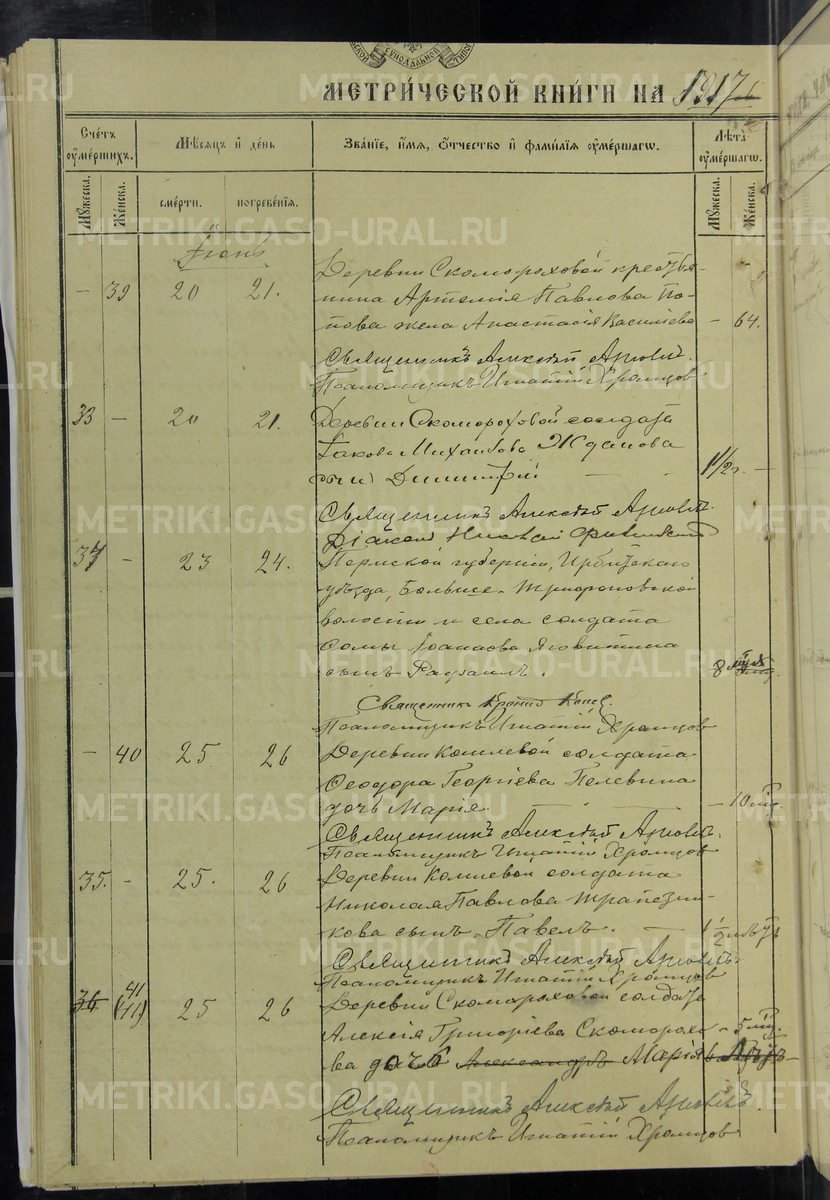 МЕТРИ́ЧЕСКОЙ КНИ́ГИ НА 1917
Сче́тъ оу҆ме́ршихъ.
Мѣ́сяцъ и҆ де́нь
Зва́нїе, и҆́мя, ѻ҆́тчество и҆ фами́лїя оу҆ме́ршагѡ.
Лѣ́та оу҆ме́ршагѡ.
Му́жеска.
Же́нска.
сме́рти.
погребе́нїя.
Му́жеска.
Же́нска.
Іюнь
Деревни Скомороховой крестья-
— 39 20 21. нина Артемія Павлова По-
пова жена Анастасія Василіева — 64.
Священникъ Алексѣй
Псаломщикъ Игнатій Храмцов
33 — 20 21. Деревни Скомороховой солдата
Іакова Михайлова Жданова
сын Димитрій — — 1 1/2 г. —
Священникъ Алексѣй
Діакон Николай
34 — 23 24. Пермской губерніи, Ирбитскаго
уѣзда, Больше-Трифоновской
волости и села солдата
Ѳомы Іоаннова
сынъ Рафаилъ. 8 мѣс.
Священникъ
Псаломщикъ Игнатій Храмцов
— 40 25 26 Деревни Кошелевой солдата
Ѳеодора Георгіева Пелевина
дочь Марія — — — 10 мѣс.
Священникъ Алексѣй
Псаломщикъ Игнатій Храмцов
35. — 25. 26 Деревни Кошелевой солдата
Николая Павлова Трапезни-
кова сынъ Павелъ. — 1 1/2
Священникъ Алексѣй
Псаломщикъ Игнатій Храмцов
36 41 (41) 25 26 Деревни Скомороховой солдата
Алексія Григоріева Скоморохо- — 5 мѣс.
ва дочь Александръ Марія
Священникъ Алексѣй
Псаломщикъ Игнатій Храмцов
METRIKI.GASO-URAL.RU